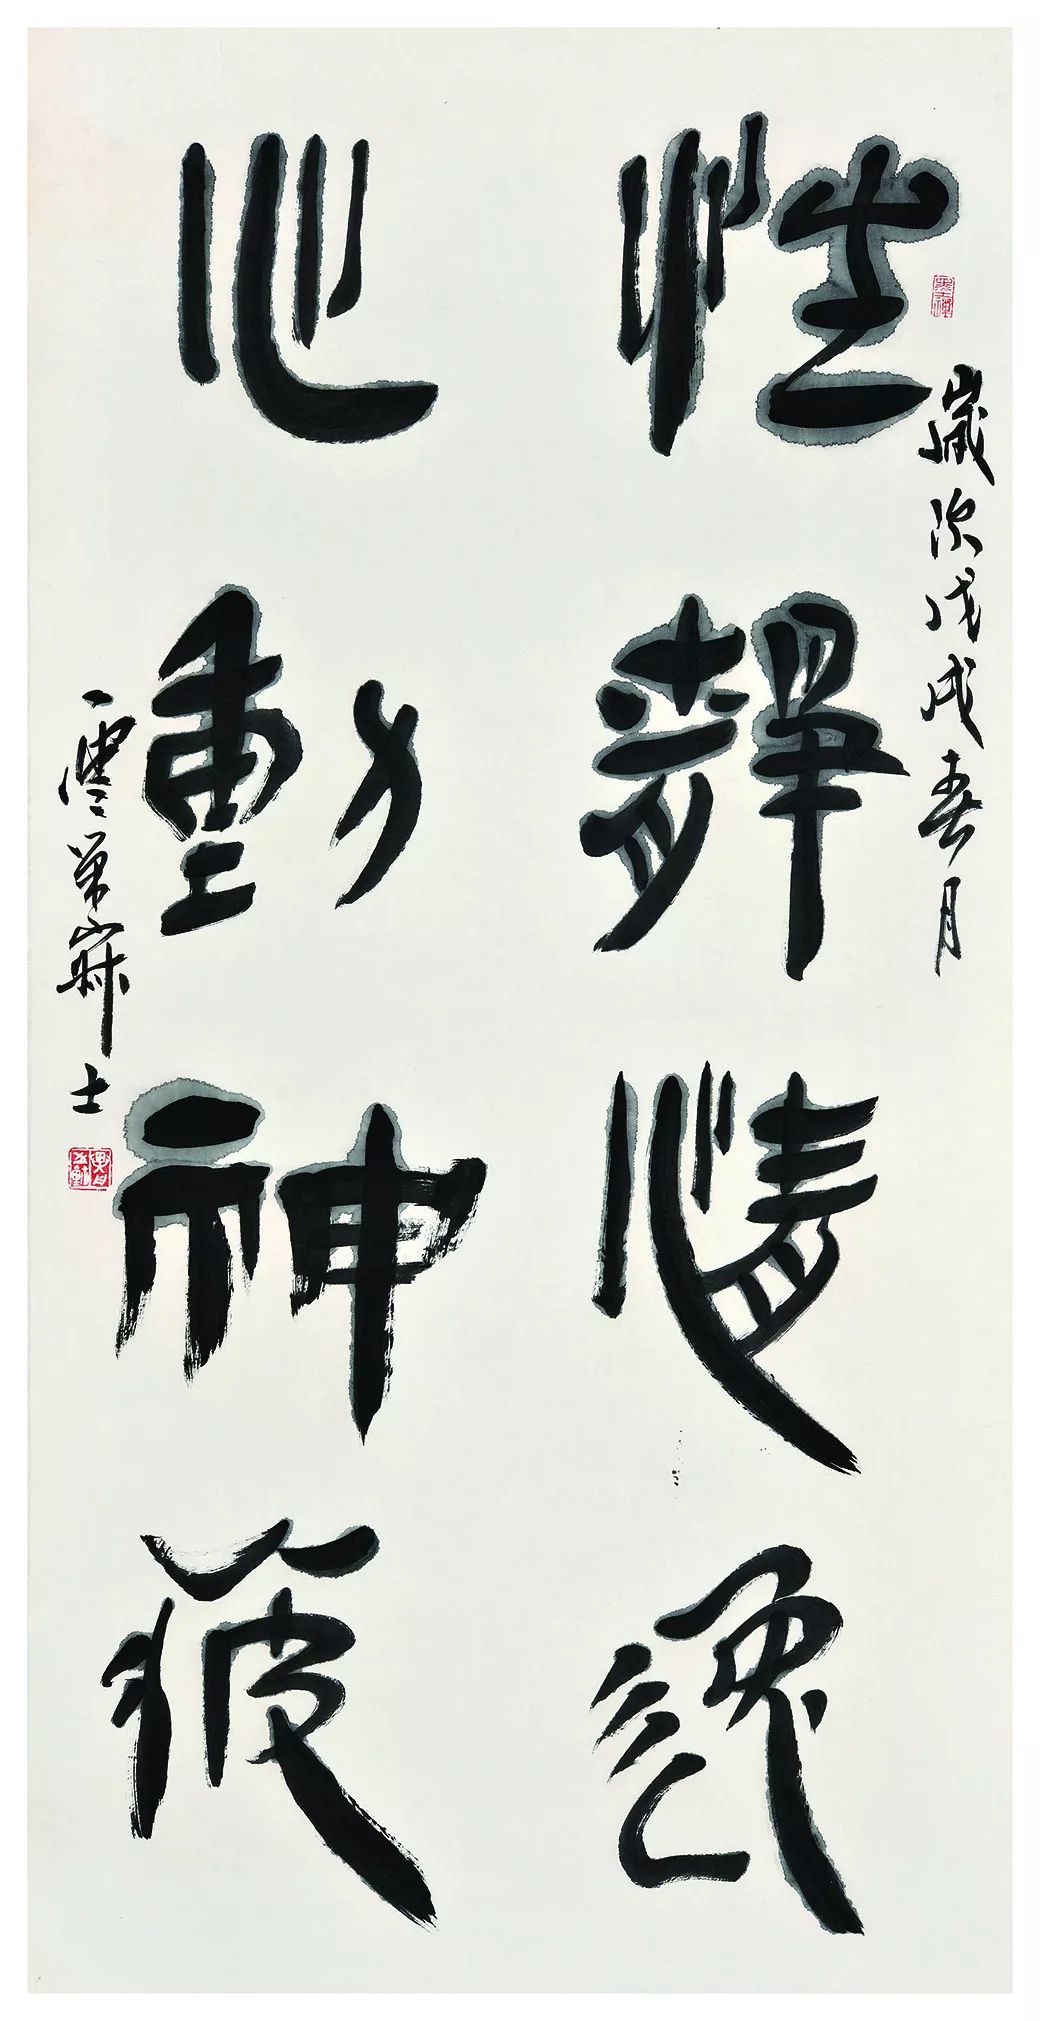 歲次戊戌春月
性靜情逸
心動神疲
雲 士